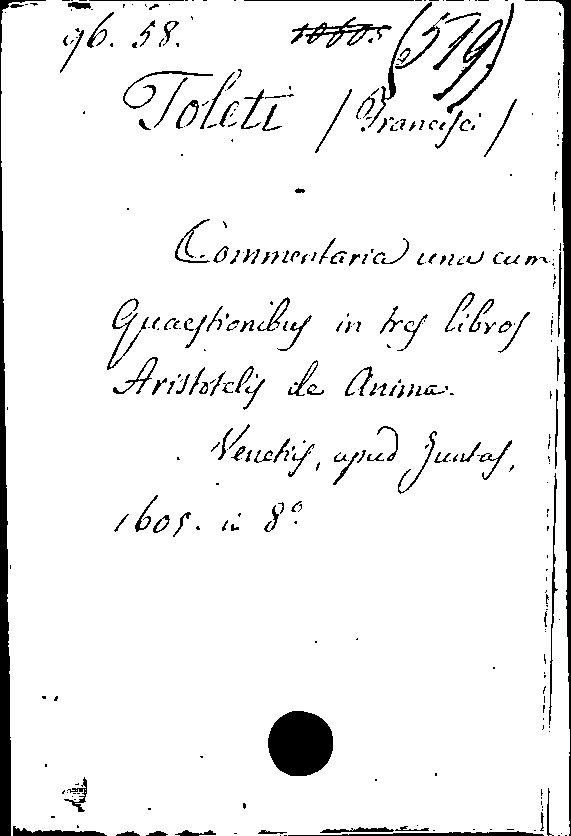 96. 58. 10605 (519)
Toleti /Francisci/
Commentaria una cum
Quaestionibus in tres libros
Aristotelis de Anima.
Venetiis, apud Juntas,
1605. in 8º